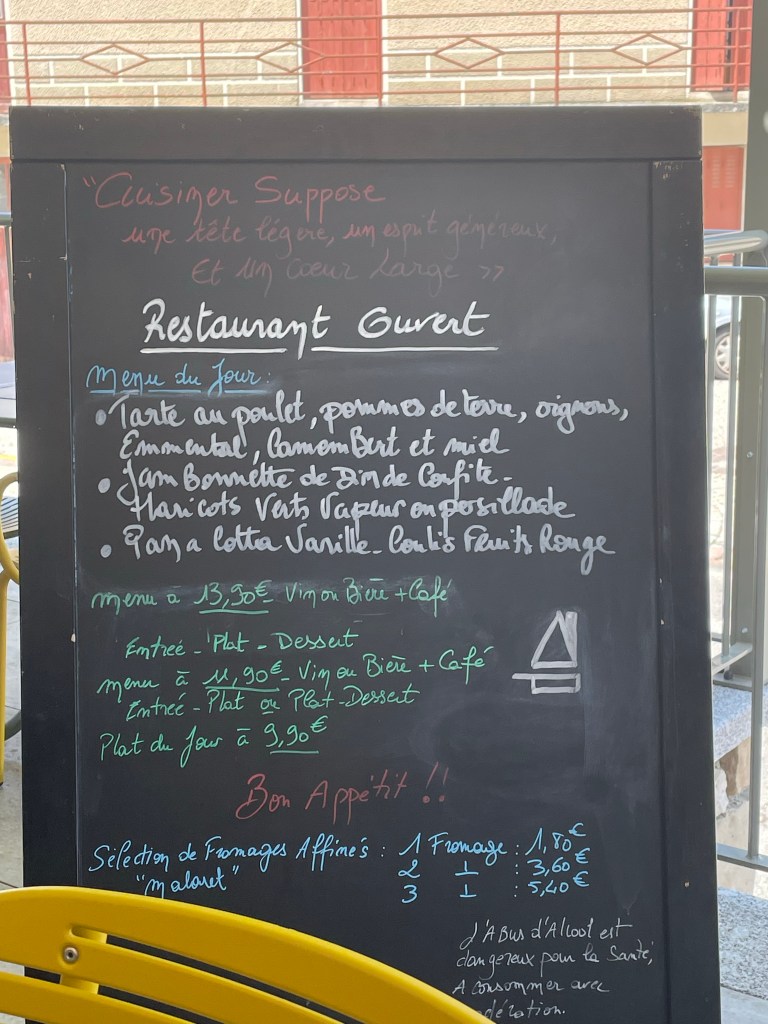 "Cuisiner Suppose
une tête légère, un esprit généreux,
Et un cœur Large »
Restaurant Ouvert
Menu du Jour :
• Tarte au poulet, pommes de terre, oignons,
Emmental, Camembert et miel
• Jambonnette de Dinde Confite -
Haricots Verts Vapeur en persillade
• Panna Cotta Vanille - Coulis Fruits Rouge
menu a 13,90€ Vin ou Bière + Café
Entrée - Plat - Dessert
menu à 11,90€ - Vin ou Bière + Café
Entrée - Plat ou Plat - Dessert
Plat du Jour à 9,90€
Bon Appétit !!
Sélection de Fromages Affinés : 1 Fromage : 1,80€
"Malaret" 2 ⊥ : 3,60€
3 ⊥ : 5,40€
L'Abus d'Alcool est
dangereux pour la Santé,
A consommer avec
dération.